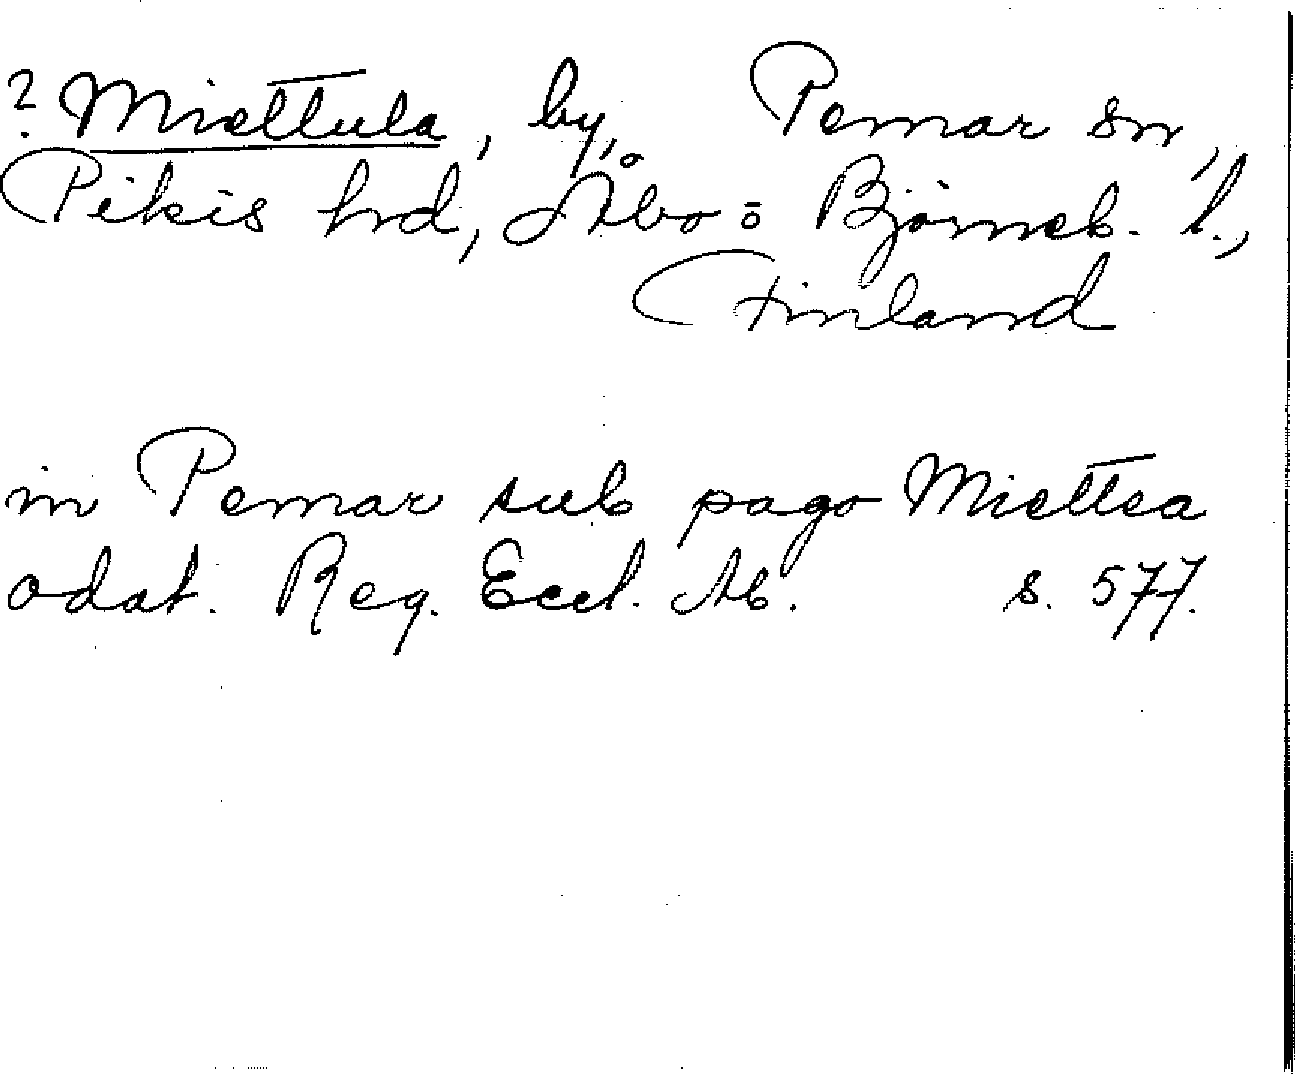 ? Miettula, by, Pemar sn,
Pikis hrd, Åbo o Björneb. l.,
Finland
in Pemar sub pago Miettea
odat. Reg. Eccl. Ab. s. 577.